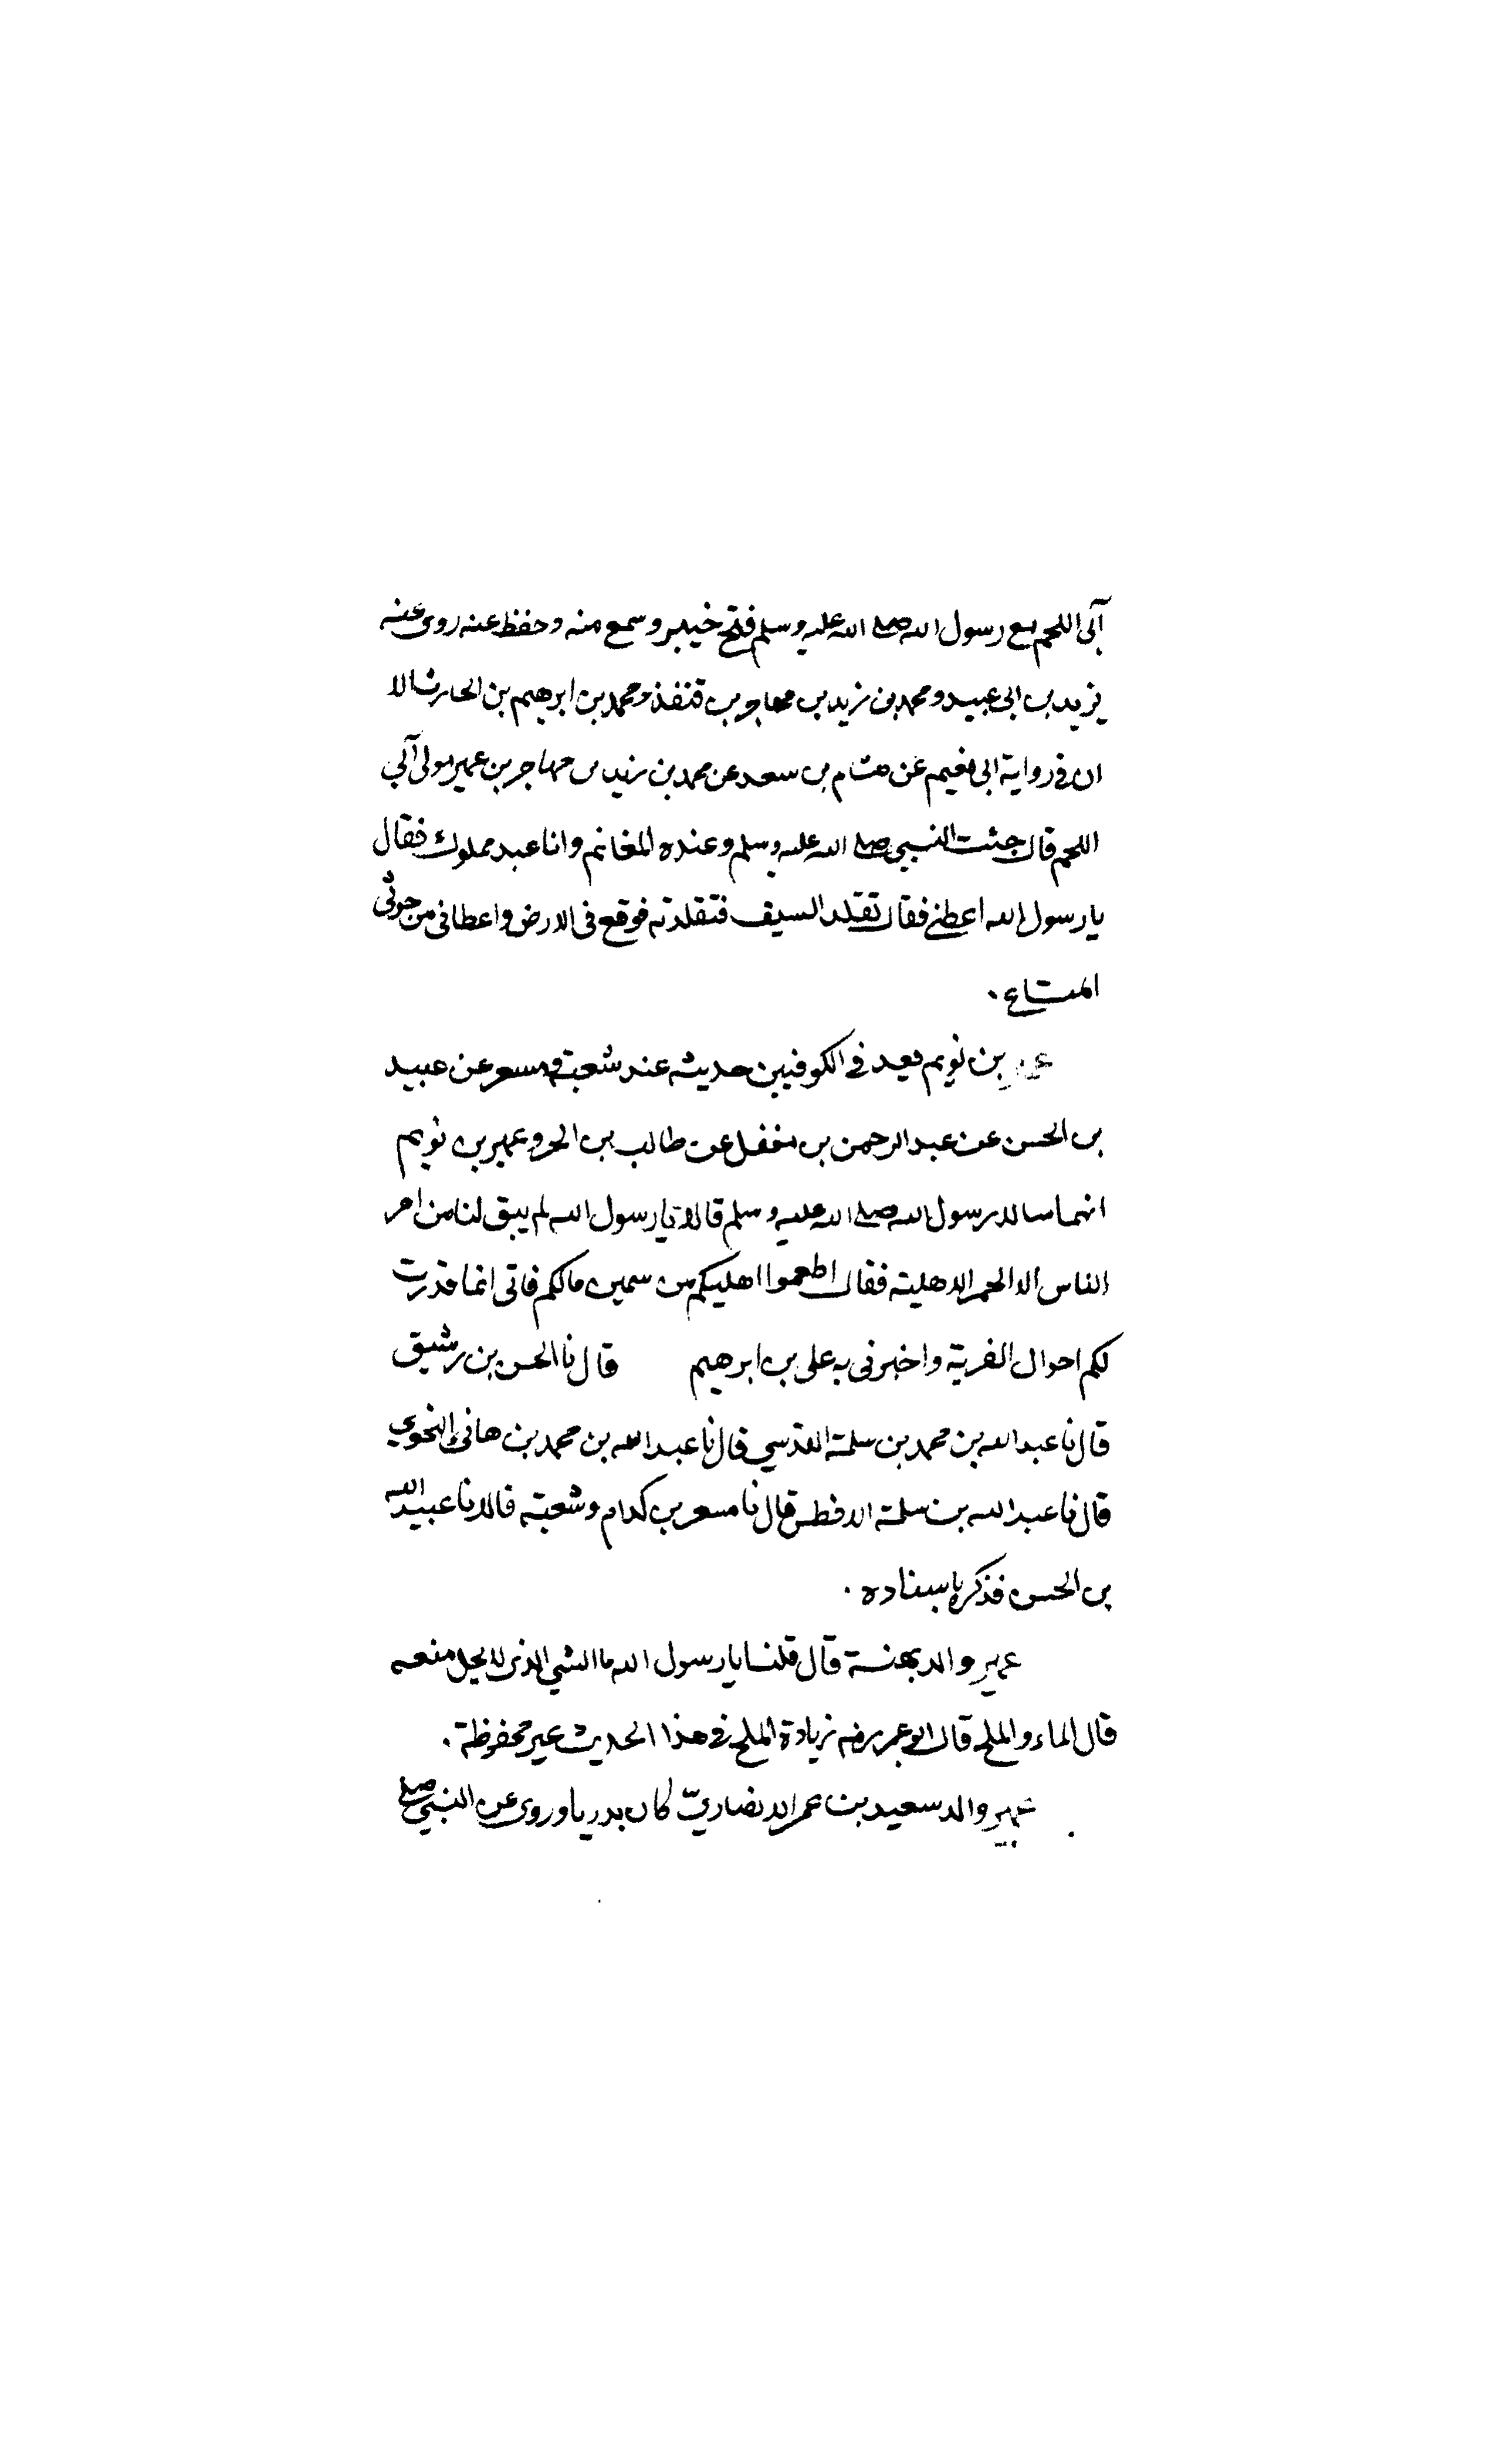 آبى اللحم مع رسول الله صلى الله عليه وسلم فتح خيبر وسمع منه وحفظ عنه روى عنه
يزيد بن ابى عبيد ومحمد بن زيد بن مهاجر بن قنفذ ومحمد بن ابرهيم بن الحارث الا
ان فى رواية ابى نعيم عن هشام بن سعد عن محمد بن زيد بن مهاجر بن عمير مولى آبي
اللحم قال جئت النبي صلى الله عليه وسلم وعنده المغانم وانا عبد مملوك فقال
يا رسول الله اعطنى فقال تقلد السيف فتقلدته فوقع فى الارض واعطانى من خرثى
المتاع.
بن نويم يعد فى الكوفيين حديثه عند شعبة ومسعر عن عبيد
بن الحسن عن عبد الرحمن بن مغفل عن طالب بن الحر وعمير بن نويم
انهما سالا رسول الله صلى الله عليه وسلم قالا يا رسول الله لم يبق لنا من امر
الناس الا الحمر الاهلية فقال اطعموا اهليكم من سمين مالكم فانى انما قذرت
لكم احوال القرية واخبرنى به على بن ابرهيم قال نا الحسن بن رشيق
قال نا عبد الله بن محمد بن سلمة المقدسي قال نا عبد الله بن محمد بن هانئ النحوي
قال نا عبد الله بن سلمة الافطس قال نا مسعر بن كدام وشعبة قالا نا عبيد الله
بن الحسن فذكر باسناده.
عمير والد بهنسة قال قلنا يا رسول الله ما الشي الذى لا يحل منعه
قال الماء والملح قال ابو عمر رضه زيادة الملح فى هذا الحديث غير محفوظة.
عمير والد سعيد بن عمر الانصاريّ كان بدريا وروى عن النبي صلى